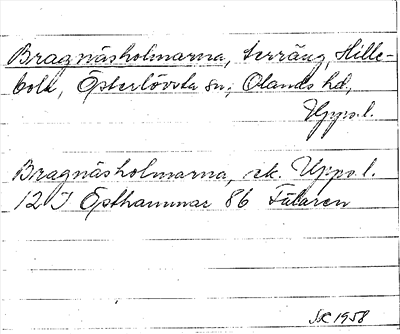 Bragnäsholmarna, terräng, Hille-
bola, Österlövsta sn, Olands hd,
Upps.l.
Bragnäsholmarna, ek. Upps.l.
12 I Östhammar 86 Fälaren
SK 1958